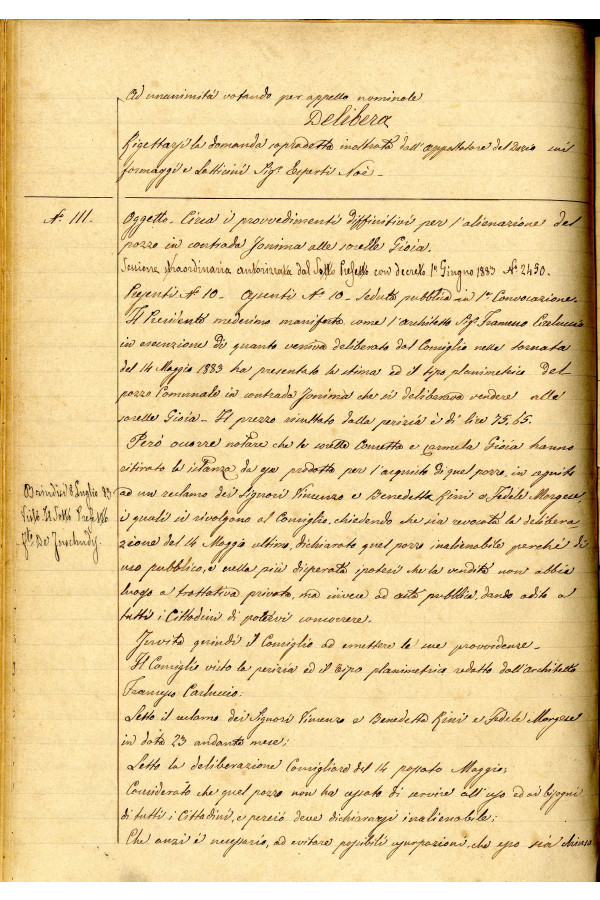 Ad unanimità votando per appello nominale
Delibera
Rigettarsi la domanda sopradetta inoltrata dall'appaltatore del Dazio sui
formaggi e Latticini Sigr Esperti Noè -
N. 111-
Oggetto - Circa i provvedimenti diffinitivi per l'alienazione del
pozzo in contrada Jonima alle sorelle Gioia.
Sessione straordinaria autorizzata dal Sotto Prefetto con decreto 1° Giugno 1883 N° 2430.
Presenti N° 10 - Assenti N° 10 - Seduta pubblica in 1a Convocazione.
Il Presidente medesimo manifesta come l'architetto Sigr Francesco Carluccio
in esecuzione di quanto veniva deliberato dal Consiglio nella tornata
del 14 Maggio 1883 ha presentato la stima ed il tipo planimetrico del
pozzo Comunale in contrada Jonima che si deliberava vendere alle
sorelle Gioia - Il prezzo risultato dalla perizia è di lire 75,65.
Però occorre notare che le sorelle Concetta e Carmela Gioia hanno
ritirato la istanza da esse prodotta per l'acquisto di quel pozzo, in seguito
ad un reclamo dei Signori Vincenzo e Benedetta Rini e Fedele Morgese,
i quali si rivolgono al Consiglio, chiedendo che sia revocata la delibera
zione del 14 Maggio ultimo, dichiarato quel pozzo inalienabile perchè di
uso pubblico, e nella più disperata ipotesi che la vendita non abbia
luogo a trattativa privata, ma invece ad asta pubblica, dando adito a
tutti i Cittadini di potervi concorrere.
Brindisi 8 Luglio 83
Visto Il Sotto Prefetto
Invita quindi il Consiglio ad emettere le sue provvidenze -
Il Consiglio visto la perizia ed il tipo planimetrico redatto dall'Architetto
Francesco Carluccio;
Letto il reclamo dei Signori Vincenzo e Benedetta Rini e Fedele Morgese
in data 23 andante mese;
Letto la deliberazione Consigliare del 14 passato Maggio;
Considerato che quel pozzo non ha cessato di servire all'uso ed ai bisogni
di tutti i Cittadini, e perciò deve dichiararsi inalienabile;
Che anzi è necessario, ad evitare possibili usurpazioni, che esso sia chiuso